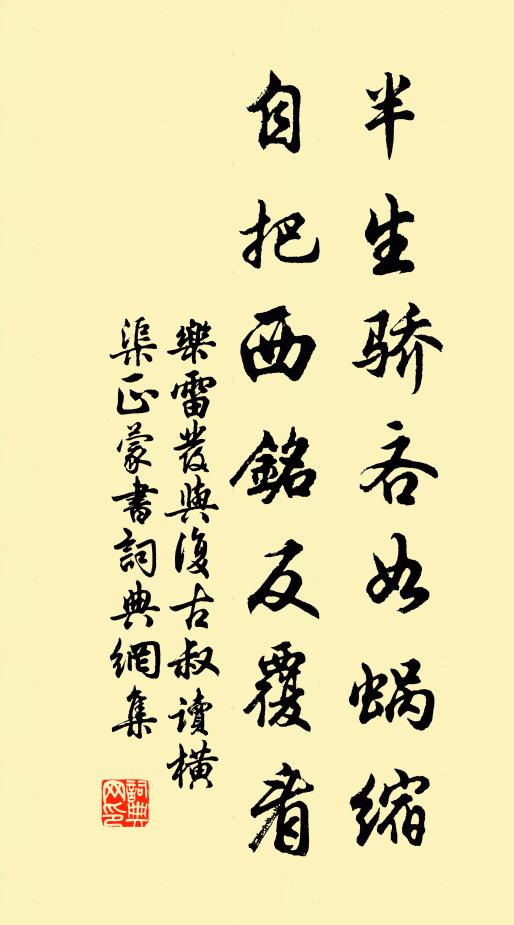 半生骄吝如蜗缩
自把西銘反覆看
樂雷發與復古叔读橫
渠正蒙書詞典網集
詞典網印